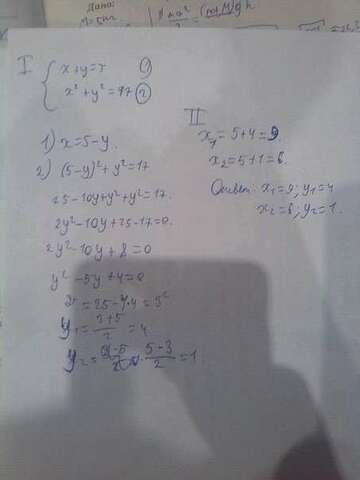 Дано:
I
x+y=5 (1)
x²+y²=17 (2)
1) x=5-y.
2) (5-y)²+y²=17
25-10y+y²+y²=17.
2y²-10y+25-17=0.
2y²-10y+8=0
y²-5y+4=0
=25-4·4=3²
y₁=3+5/2=4
y₂= 5-3/2=1.
II
x₁=5+4=9.
x₂=5+1=6.
Ответ: x₁=9; y₁=4
x₂=6; y₂=1.